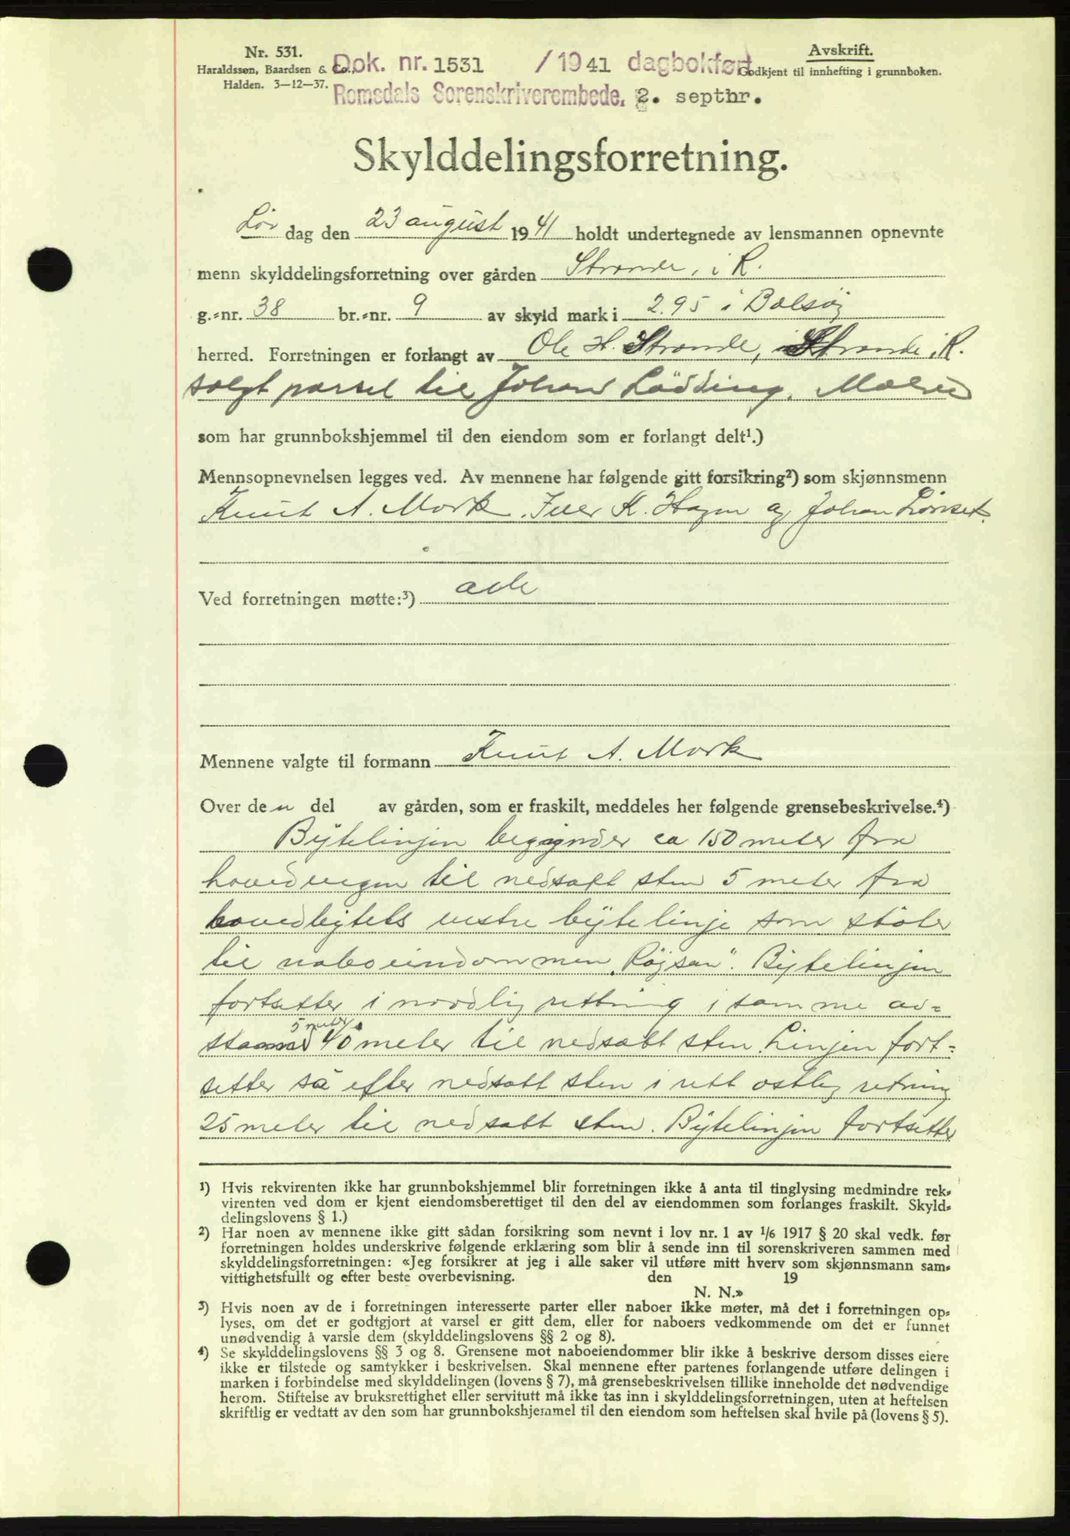 Nr. 531.
Haraldssen, Baardsen & Co.,
Halden. 3-12-37.
Dok. nr. 1531 /1941 dagbokført
Romsdals Sorenskriverembede, 2. septbr.
Avskrift.
Godkjent til innhefting i grunnboken.
Skylddelingsforretning.
Lør dag den 23 august 1941 holdt undertegnede av lensmannen opnevnte
menn skylddelingsforretning over gården Strande, i R.
g.-nr. 38 br.-nr. 9 av skyld mark i 2.95 i Bolsøy
herred. Forretningen er forlangt av Ole H. Strande, Strande i R.
solgt parsel til Johan Lødding, Molde
som har grunnbokshjemmel til den eiendom som er forlangt delt¹.)
Mennsopnevnelsen legges ved. Av mennene har følgende gitt forsikring²) som skjønnsmenn
Knut A. Mork. Iver K. Hagen og Johan Lønset.
Ved forretningen møtte:³) alle
Mennene valgte til formann Knut A. Mork
Over den del av gården, som er fraskilt, meddeles her følgende grensebeskrivelse.⁴)
Bytelinjen begynder ca 150 meter fra
hovedvegen til nedsatt sten 5 meter fra
hovedbytets vestre bytelinje som støter
til naboeindommen „Røysan". Bytelinjen
fortsetter i nordlig rettning i samme av=
stand 5 meter 40 meter til nedsatt sten. Linjen fort=
setter så efter nedsatt sten i rett ostlig retning
25 meter til nedsatt sten. Bytelinjen fortsetter
¹) Hvis rekvirenten ikke har grunnbokshjemmel blir forretningen ikke å anta til tinglysing medmindre rek-
virenten ved dom er kjent eiendomsberettiget til den del av eiendommen som forlanges fraskilt. Skyld-
delingslovens § 1.)
²) Har noen av mennene ikke gitt sådan forsikring som nevnt i lov nr. 1 av 1/6 1917 § 20 skal vedk. før
forretningen holdes underskrive følgende erklæring som blir å sende inn til sorenskriveren sammen med
skylddelingsforretningen: «Jeg forsikrer at jeg i alle saker vil utføre mitt hverv som skjønnsmann sam-
vittighetsfullt og efter beste overbevisning. den 19
N. N.»
³) Hvis noen av de i forretningen interesserte parter eller naboer ikke møter, må det i forretningen op-
lyses, om det er godtgjort at varsel er gitt dem, eller for naboers vedkommende om det er funnet
unødvendig å varsle dem (skylddelingslovens §§ 2 og 8).
⁴) Se skylddelingslovens §§ 3 og 8. Grensene mot naboeiendommer blir ikke å beskrive dersom disses eiere
ikke er tilstede og samtykker i beskrivelsen. Skal mennene efter partenes forlangende utføre delingen i
marken i forbindelse med skylddelingen (lovens § 7), må grensebeskrivelsen tillike inneholde det nødvendige
herom. Stiftelse av bruksrettighet eller servitutt må ikke tas inn i skylddelingsforretningen, uten at heftelsen
skriftlig er vedtatt av den som har grunnbokshjemmel til den eiendom som heftelsen skal hvile på (lovens § 5).